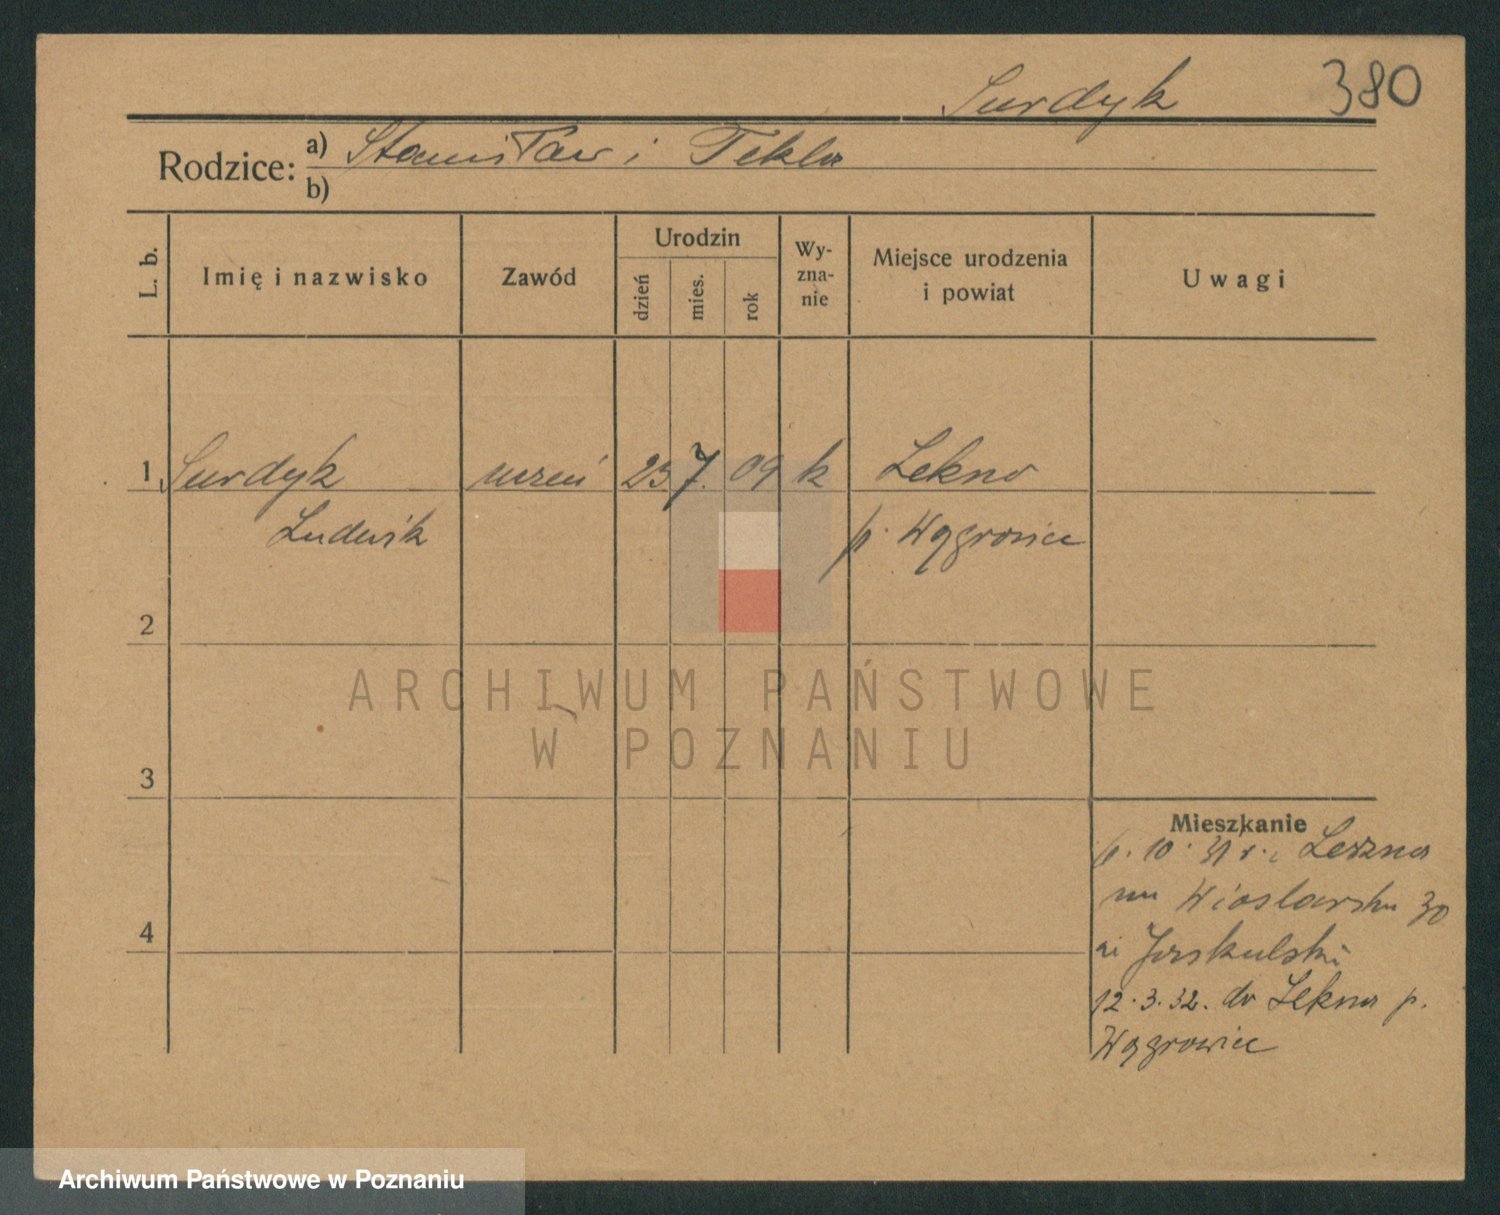 Surdyk 380
Rodzice: a) Stanisław i Tekla
b)
L. b. Imię i nazwisko Zawód Urodzin dzień mies. rok Wy-zna-nie Miejsce urodzenia i powiat Uwagi
1 Surdyk uczeń 25 7. 09 k Łekno
Ludwik p. Wągrowiec
2
ARCHIWUM PAŃSTWOWE
W POZNANIU
3
Mieszkanie
10. 31 r.
na Wioślarska 30
4
Jaskulski
12.3.32. do Łekna p.
Wągrowiec
Archiwum Państwowe w Poznaniu